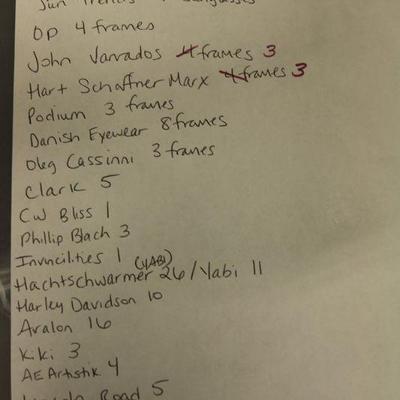 Sun
OP 4 frames
John Varvados 4 frames 3
Hart Schaffner Marx 4 frames 3
Podium 3 frames
Danish Eyewear 8 frames
Oleg Cassinni 3 frames
Clark 5
CW Bliss 1
Phillip Blach 3
Invincilities 1 (YABI)
Hachtschwarmer 26/Yabi 11
Harley Davidson 10
Avalon 16
Kiki 3
AE Artistik 4
Road 5